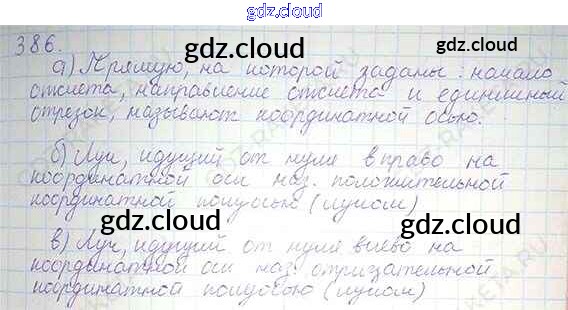 gdz.cloud
386.
gdz.cloud
а) Прямую, на которой заданы: начало
отсчета, направление отсчета и единичный
отрезок, называют координатной осью.
gdz.cloud
б) Луч, идущий от нуля вправо на
координатной оси наз. положительной
координатной полуосью (лучом)
gdz.cloud
в) Луч, идущий от нуля влево на
координатной оси наз. отрицательной
координатной полуосью (лучом)
gdz.cloud